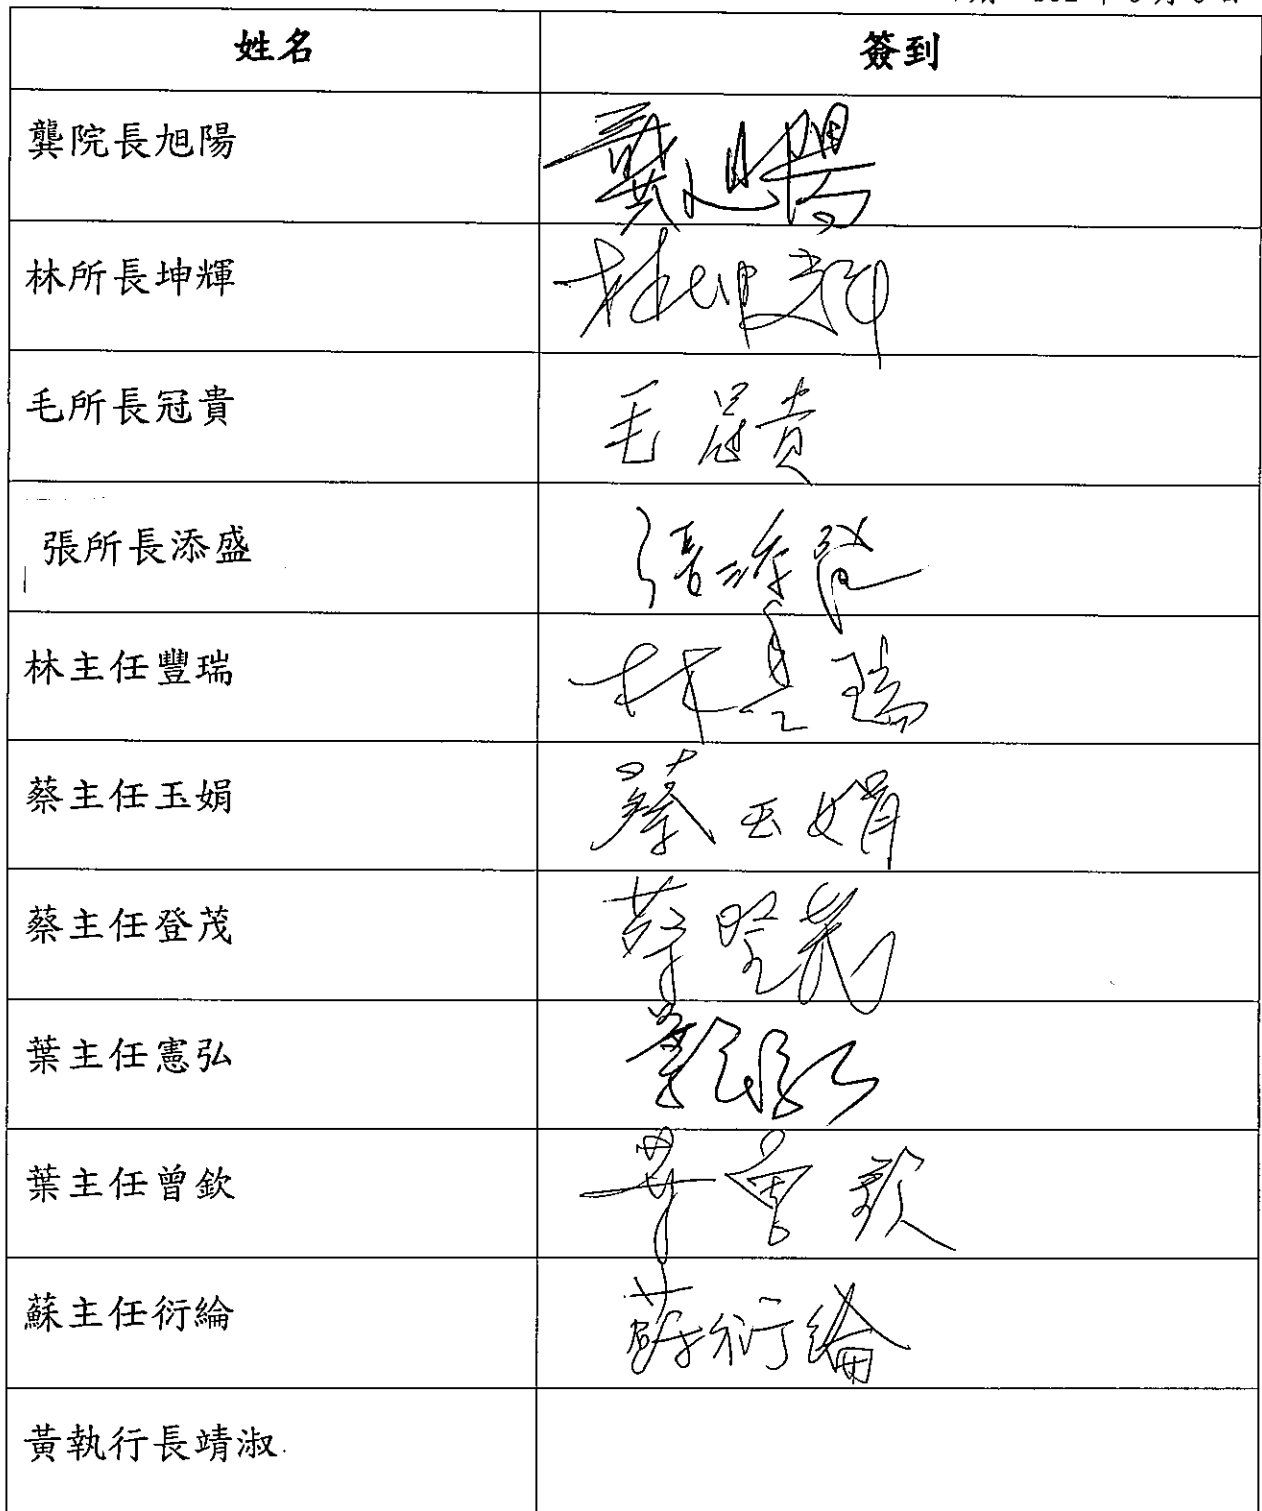 姓名 簽到
龔院長旭陽 龔旭陽
林所長坤輝 林坤輝
毛所長冠貴 毛冠貴
張所長添盛 張添盛
林主任豐瑞 林豐瑞
蔡主任玉娟 蔡玉娟
蔡主任登茂 蔡登茂
葉主任憲弘 葉憲弘
葉主任曾欽 葉曾欽
蘇主任衍綸 蘇衍綸
黃執行長靖淑